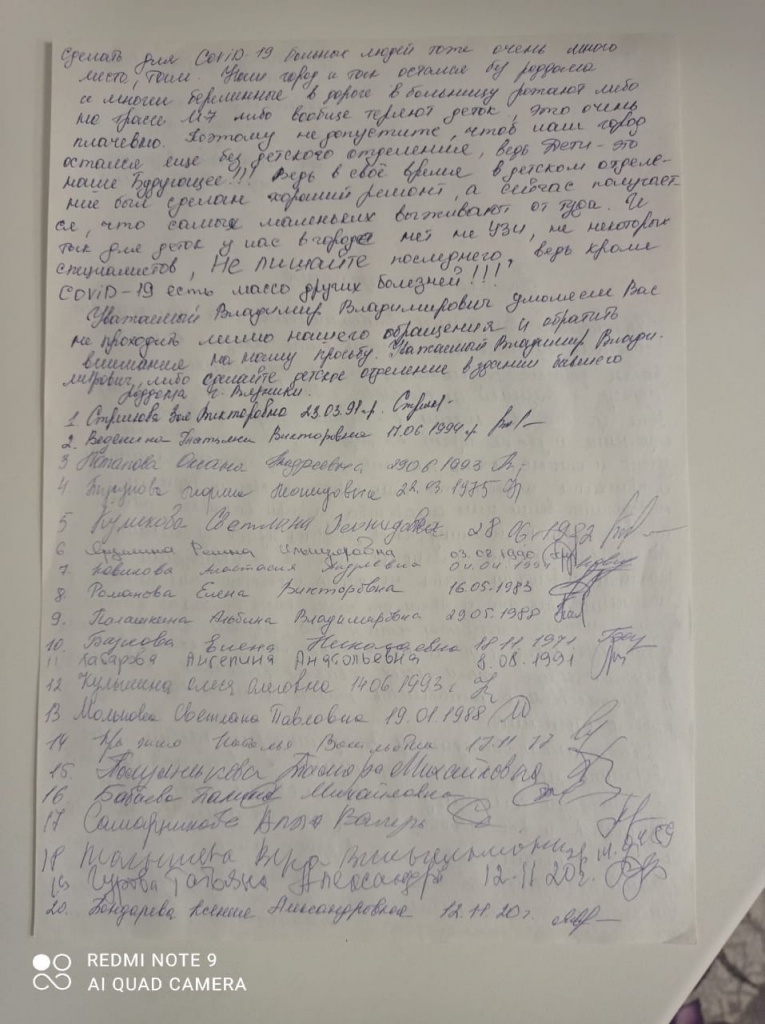 сделать для COVID-19 больных людей тоже очень много
места, там. Наш город и так остался бу роддома
и многии беременные в дороге в больницу рожают либо
на трассе М7 либо вообще теряют деток, это очень
плачевно. Поэтому не допустите, чтоб наш город
остался еще без детского отделения, ведь Дети-это
наше Будующее!!! Ведь в своё время в детском отделе-
ние был сделан хороший ремонт, а сейчас получает-
ся, что самых маленьких выживают от туда. И
так для деток у нас в городе нет не УЗИ, не некоторых
специалистов, Не лишайте последнего, ведь кроме
COVID-19 есть масса других болезней!!!
Уважаемый Владимир Владимирович умоляем Вас
не проходить мимо нашего обращения и обратить
внимания на нашу просьбу. Уважаемый Владимир Влади-
мирович, либо сделайте детское отделение в здании бывшего
роддома г. Вязники.
1 Викторовна 23.03.91.г.
2. Веденина Татьяна Викторовна 17.06.1994 г
3 Потапова Оксана Андреевна 1993
4 Леонидовна 22.03.1975
5 Куликова Светлана Геннадьевна 28.06.1982
6 03.08.1990
7. Новикова Анастасия Андреевна 04.04.1994
8. Романова Елена Викторовна 16.05.1983
9. Альбина Владимировна 29.05.1988
10. Елена Николаевна 18.11.1971
11 Хабарова Ангелина Анатольевна 8.08.1991
12 Олеся 14.06.1993 г
13 Светлана Павловна 19.01.1988
14 Наталья Васильевна 17.11.77
15. Тамара Михайловна
16. Бабаева Михайловна
17 Самарникова Алла Валерь
18 Малышева Вера
19 Татьяна Александр 12.11.20г.
20. Бондарева Ксения Александровна 12.11.20г.
REDMI NOTE 9
AI QUAD CAMERA